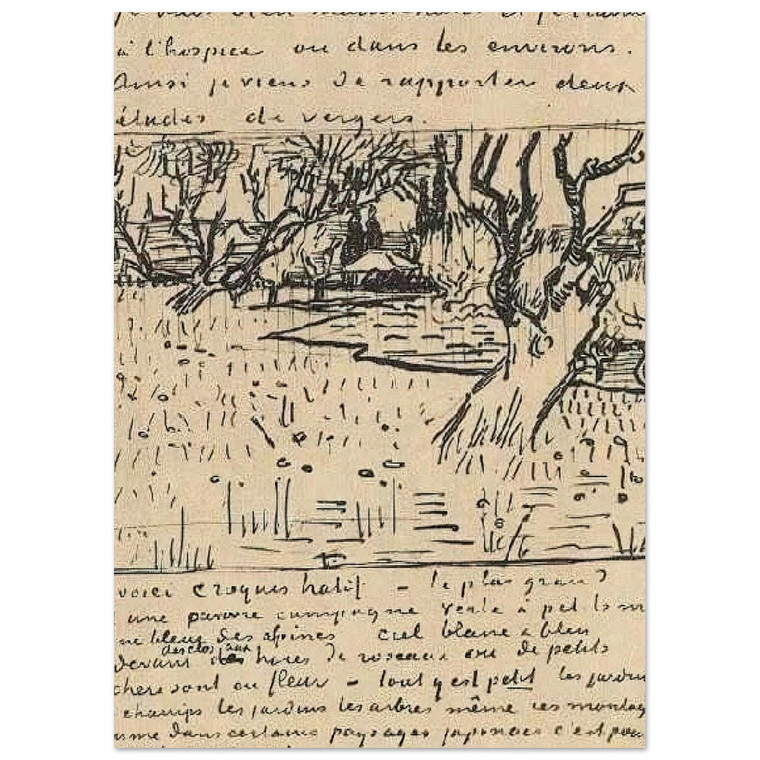 à l'hospice ou dans les environs.
Ainsi je viens de rapporter deux
études de vergers.
voici croquis hatif – le plus grand
une pauvre campagne verte à pet
bleue des alpines ciel blanc & bleu
des clos aux
devant haies de roseaux ou de petits
sont en fleur – tout y est petit les jardins
champs les jardins les arbres même ces montag
dans certains paysages japonais c'est pour